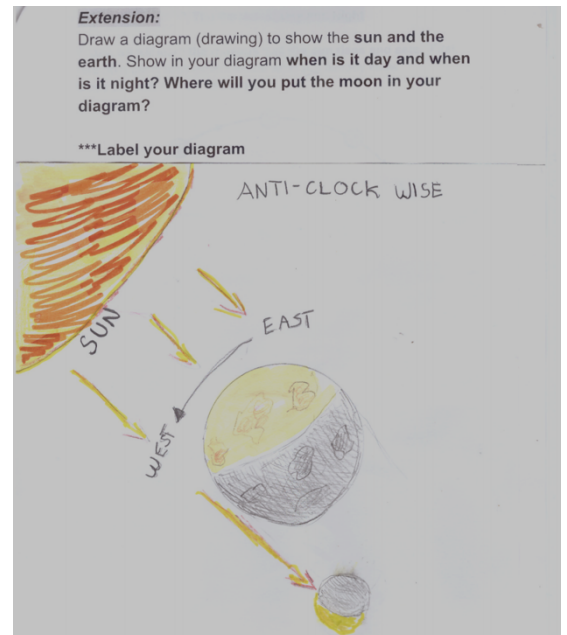 Extension:
Draw a diagram (drawing) to show the sun and the
earth. Show in your diagram when is it day and when
is it night? Where will you put the moon in your
diagram?
***Label your diagram
ANTI-CLOCK WISE
SUN
EAST
WEST